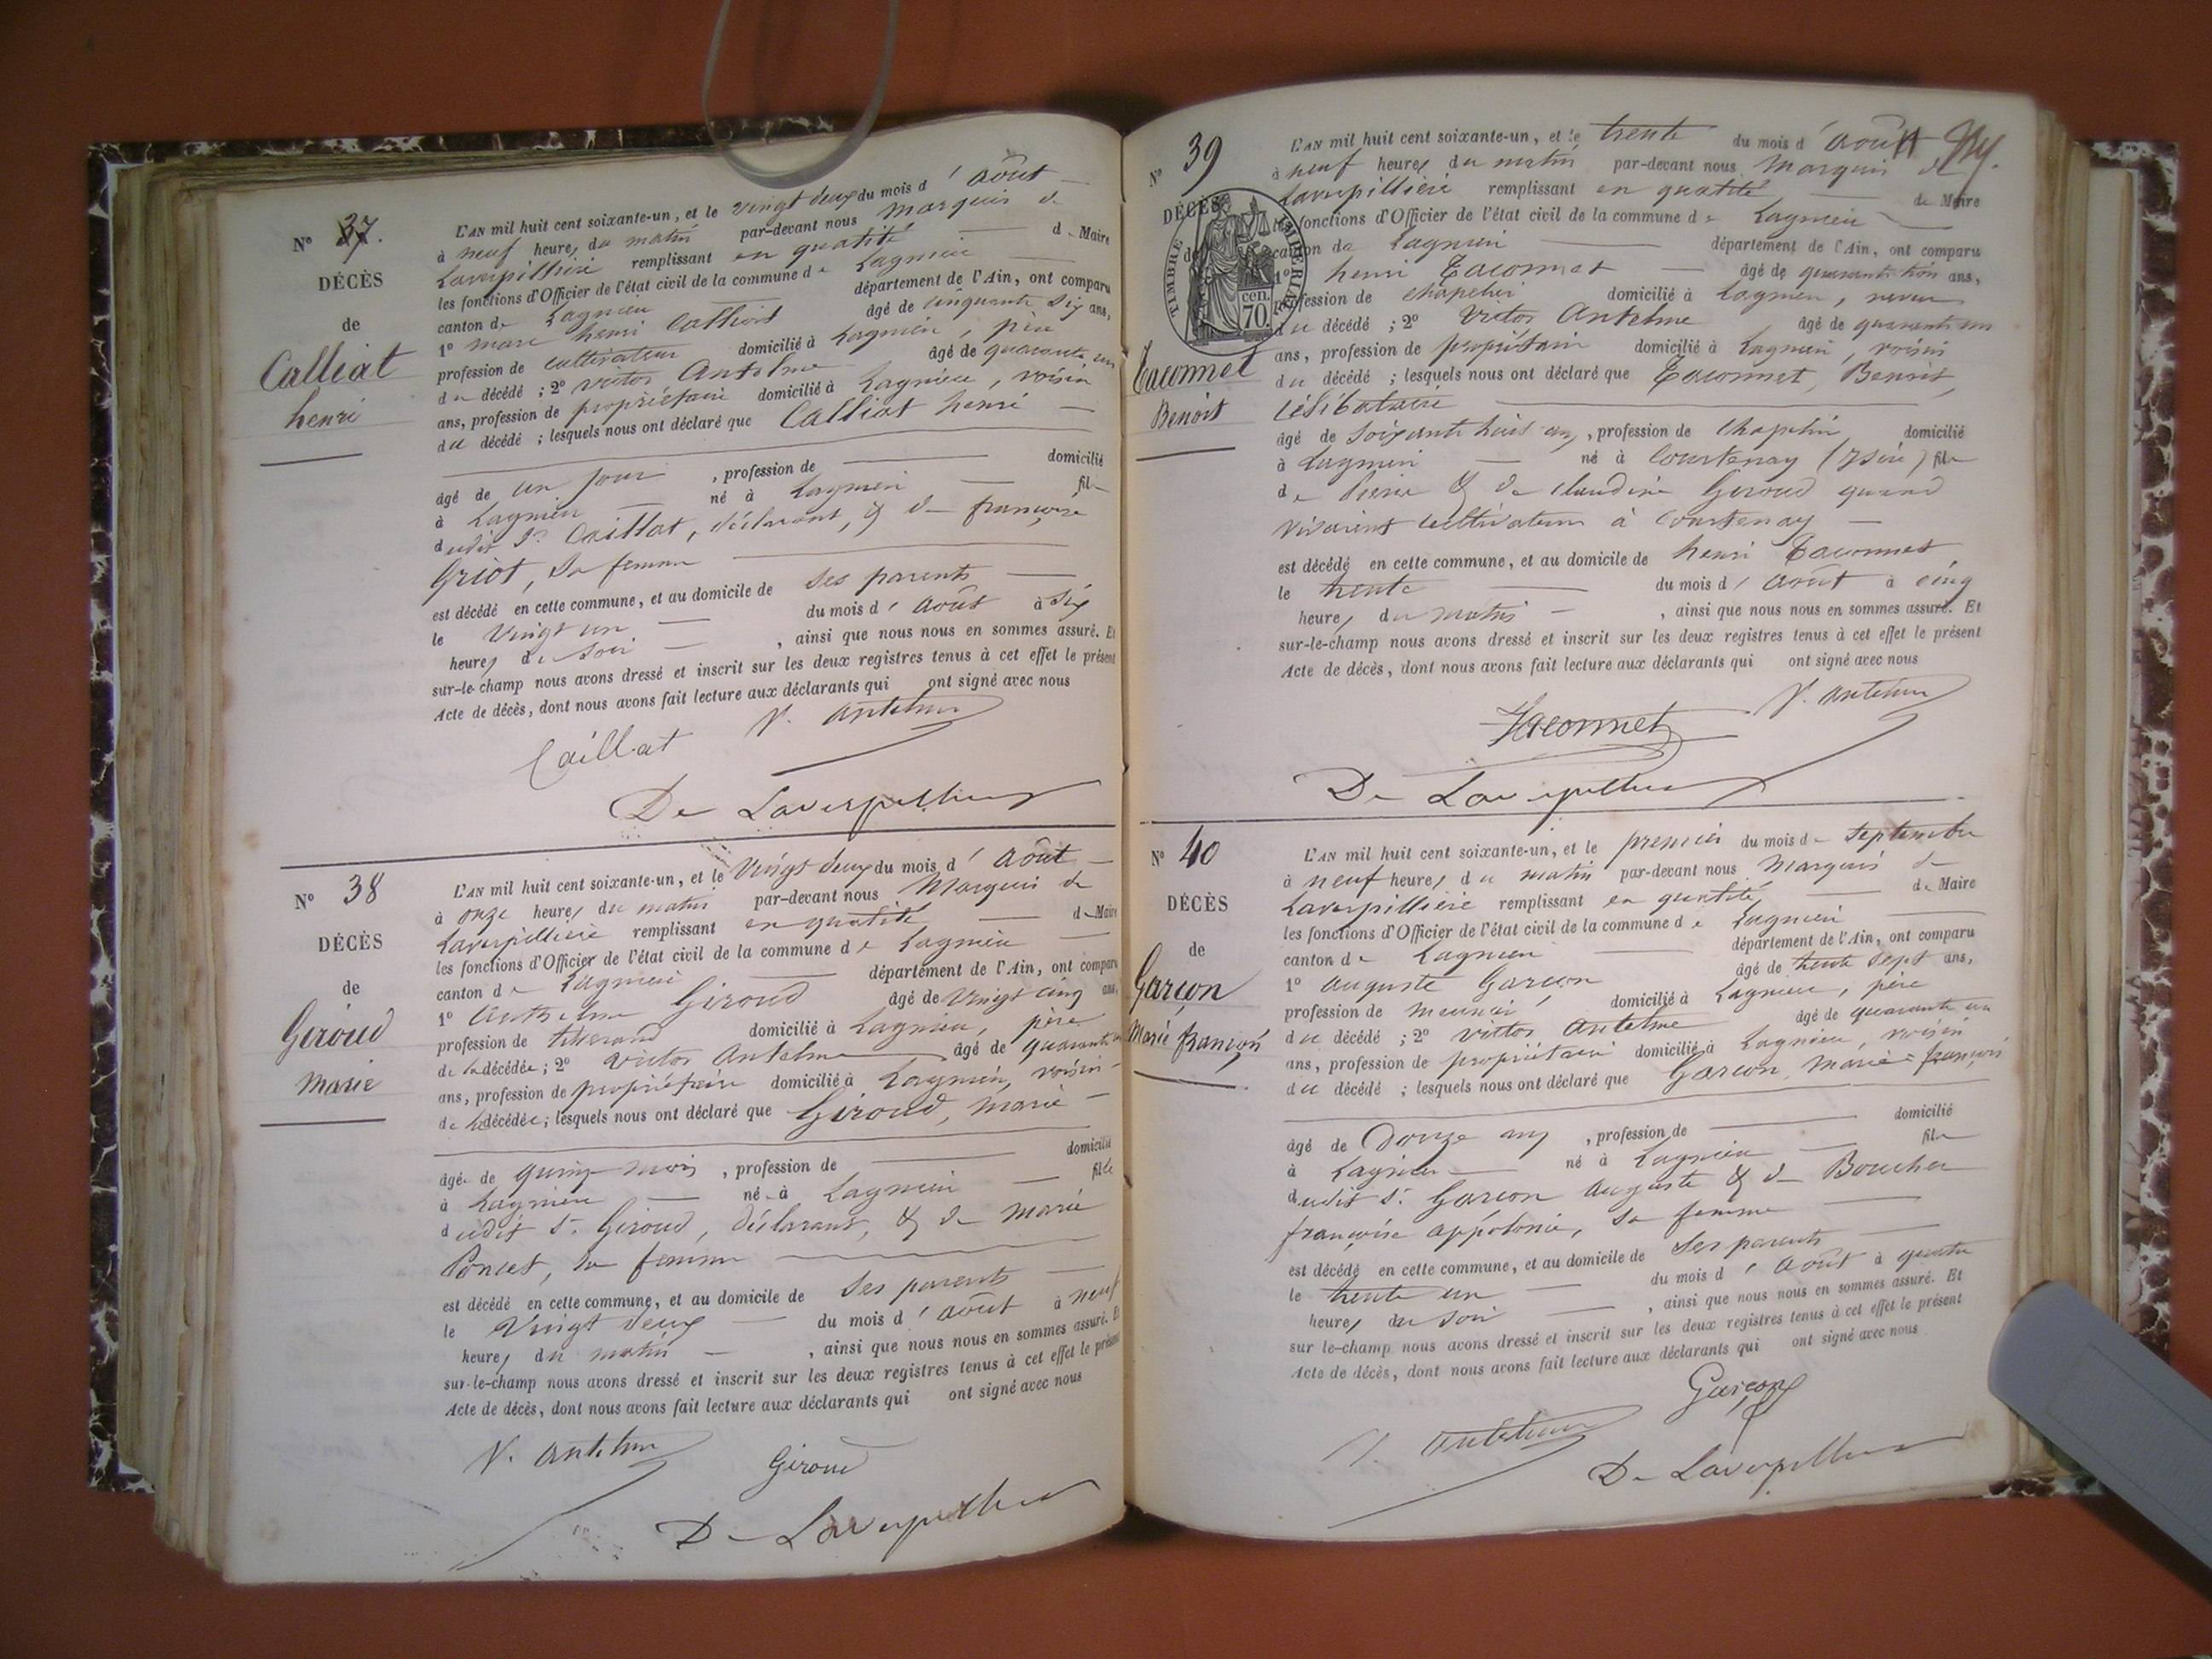 N° 37.
DÉCÈS
de
Calliat
henri
L'AN mil huit cent soixante-un, et le vingt deux du mois d'août
à neuf heures du matin par-devant nous Marquis de
Laverpillière remplissant en qualité de Maire
les fonctions d'Officier de l'état civil de la commune de Lagnieu
canton de Lagnieu département de l'Ain, ont comparu
1° marc henri Calliat âgé de cinquante six ans,
profession de cultivateur domicilié à Lagnieu, père
du décédé ; 2° Victor Antelme âgé de quarante un
ans, profession de propriétaire domicilié à Lagnieu, voisin
du décédé ; lesquels nous ont déclaré que Calliat henri
âgé de un jour , profession de domicilié
à Lagnieu né à Lagnieu fils
dudit Sr Caillat, déclarant, & de françoise
Griot, sa femme
est décédé en cette commune, et au domicile de ses parents
le vingt un du mois d'août à six
heures du soir , ainsi que nous nous en sommes assuré. Et
sur-le-champ nous avons dressé et inscrit sur les deux registres tenus à cet effet le présent
Acte de décès, dont nous avons fait lecture aux déclarants qui ont signé avec nous
Caillat V. Antelme
De Laverpilliere
N° 38
DÉCÈS
de
Giroud
Marie
L'AN mil huit cent soixante-un, et le vingt deux du mois d'août
à onze heures du matin par-devant nous Marquis de
Laverpillière remplissant en qualité de Maire
les fonctions d'Officier de l'état civil de la commune de Lagnieu
canton de Lagnieu département de l'Ain, ont comparu
1° Anthelme Giroud âgé de vingt cinq ans,
profession de tisserand domicilié à Lagnieu, père
de la décédée ; 2° Victor Antelme âgé de quarante un
ans, profession de propriétaire domicilié à Lagnieu, voisin
de la décédée ; lesquels nous ont déclaré que Giroud, Marie
âgée de quinze mois , profession de domicilié
à Lagnieu née à Lagnieu fille
dudit Sr Giroud, déclarant, & de Marie
Poncet, sa femme
est décédé en cette commune, et au domicile de ses parents
le vingt deux du mois d'août à neuf
heures du matin , ainsi que nous nous en sommes assuré. Et
sur-le-champ nous avons dressé et inscrit sur les deux registres tenus à cet effet le présent
Acte de décès, dont nous avons fait lecture aux déclarants qui ont signé avec nous
V. Antelme Giroud
De Laverpilliere
N° 39
DÉCÈS
de
Taconnet
Benoit
TIMBRE IMPERIAL
70 cen.
L'AN mil huit cent soixante-un, et le trente du mois d'août
à neuf heures du matin par-devant nous Marquis de
Laverpillière remplissant en qualité de Maire
les fonctions d'Officier de l'état civil de la commune de Lagnieu
canton de Lagnieu département de l'Ain, ont comparu
1° henri Taconnet âgé de quarante trois ans,
profession de chapelier domicilié à Lagnieu, neveu
du décédé ; 2° Victor Antelme âgé de quarante un
ans, profession de propriétaire domicilié à Lagnieu, voisin
du décédé ; lesquels nous ont déclaré que Taconnet, Benoit,
célibataire
âgé de soixante huit ans, profession de chapelier domicilié
à Lagnieu né à Courtenay (Isère) fils
de Pierre & de Claudine Giroud quand
vivaient cultivateurs à Courtenay
est décédé en cette commune, et au domicile de henri Taconnet
le trente du mois d'août à cinq
heures du matin , ainsi que nous nous en sommes assuré. Et
sur-le-champ nous avons dressé et inscrit sur les deux registres tenus à cet effet le présent
Acte de décès, dont nous avons fait lecture aux déclarants qui ont signé avec nous
Taconnet V. Antelme
De Laverpilliere
N° 40
DÉCÈS
de
Garcon
Marie françois
L'AN mil huit cent soixante-un, et le premier du mois de Septembre
à neuf heures du matin par-devant nous Marquis de
Laverpillière remplissant en qualité de Maire
les fonctions d'Officier de l'état civil de la commune de Lagnieu
canton de Lagnieu département de l'Ain, ont comparu
1° Auguste Garcon âgé de trente sept ans,
profession de meunier domicilié à Lagnieu, père
du décédé ; 2° Victor Antelme âgé de quarante un
ans, profession de propriétaire domicilié à Lagnieu, voisin
du décédé ; lesquels nous ont déclaré que Garcon, Marie=françois
âgé de Douze ans , profession de domicilié
à Lagnieu né à Lagnieu fils
dudit Sr Garcon Auguste & de Boucher
françoise appolonie, sa femme
est décédé en cette commune, et au domicile de ses parents
le trente un du mois d'août à quatre
heures du soir , ainsi que nous nous en sommes assuré. Et
sur le-champ nous avons dressé et inscrit sur les deux registres tenus à cet effet le présent
Acte de décès, dont nous avons fait lecture aux déclarants qui ont signé avec nous
Garçon
V. Antelme
De Laverpilliere